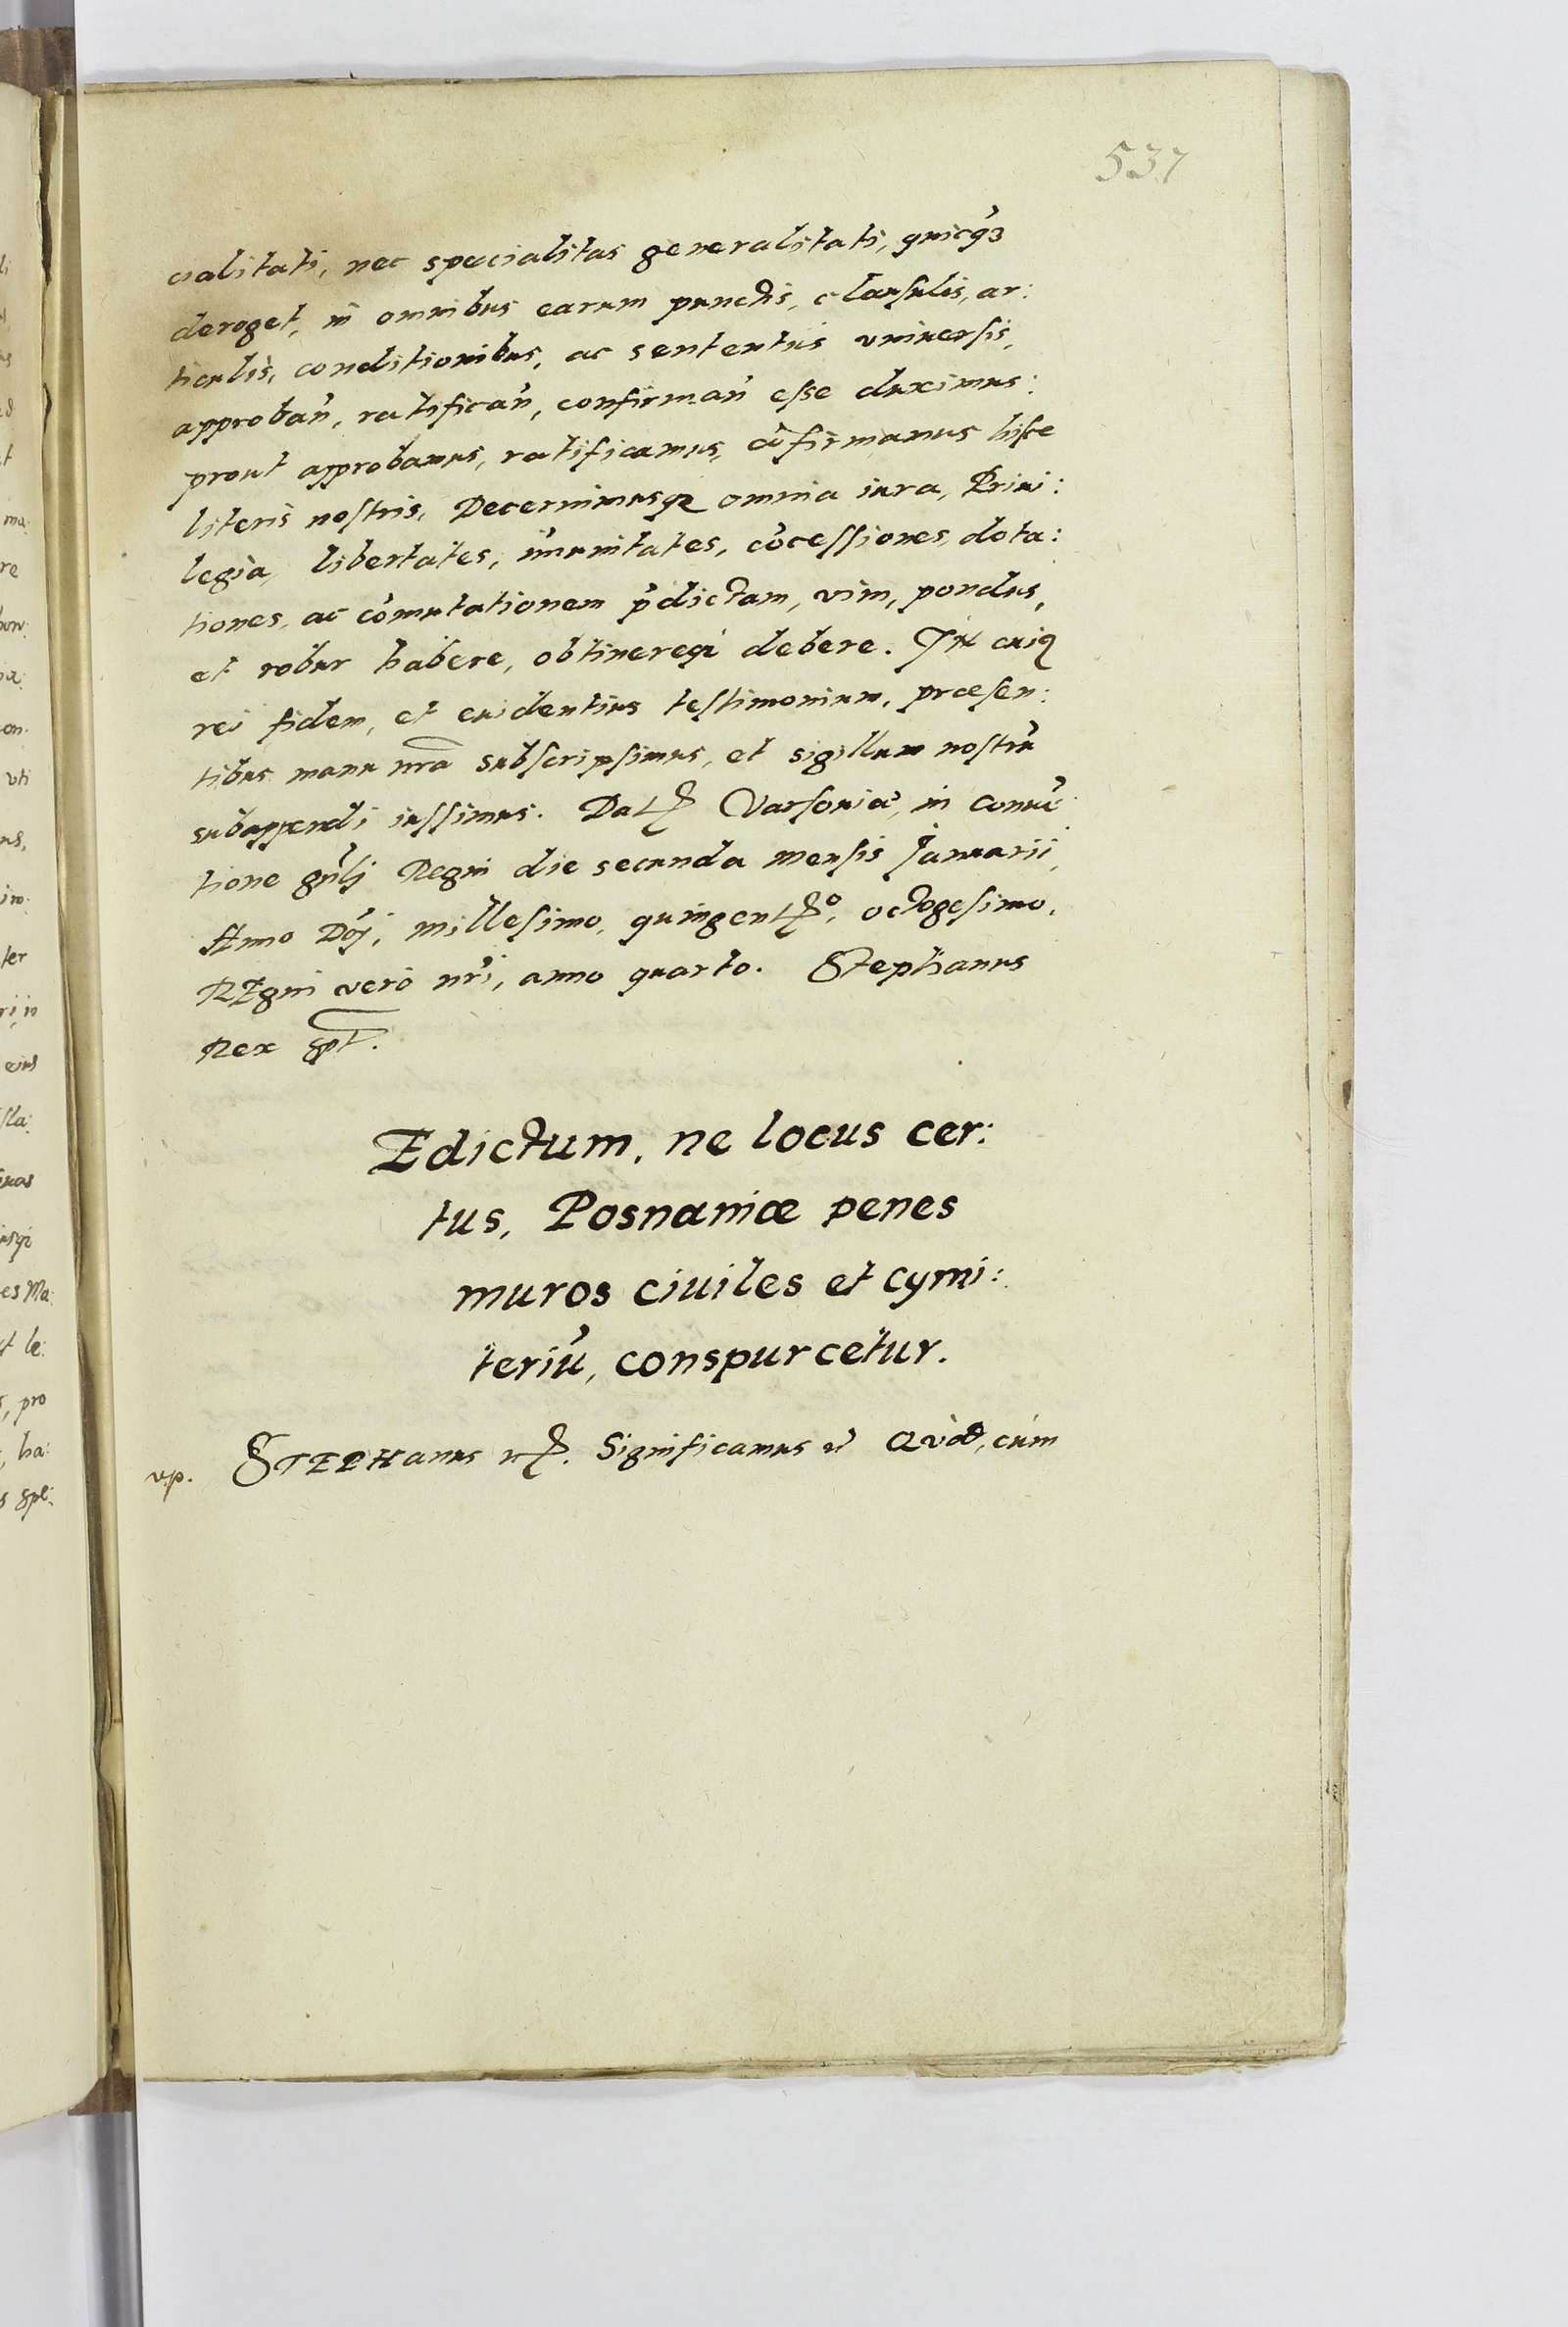 537
cialitati, nec specialitas generalitati, quicq́ʒ
deroget, in omnibus earum punctis, clausulis, ar:
ticulis, conditionibus, ac sententiis vniuersis,
approbań, ratificań, confirmań esse duximus:
prout approbamus, ratificamus, cōfirmamus hisce
literis nostris, Decernimusq; omnia iura, Priui:
legia, libertates, im̄unitates, cōcessiones, dota:
tiones, ac com̄utationem p̄dictam, vim, pondus,
et robur habere, obtinereq; debere. In cuiꝰ
rei fidem, et euidentius testimonium, præsen:
tibus manu nr̃a subscripsimus, et sigillum nostrū
subappendi iussimus. Datꝭ Varsouiæ, in conuē:
tione gn̄lj Regni die secunda mensis Januarii,
Anno Dn̄j, millesimo, quingentꝭo, octogesimo,
REgni vero nr̄i, anno quarto. Stephanus
Rex sspt.
Edictum, ne locus cer:
tus, Posnaniæ penes
muros ciuiles et cymi:
teriū, conspurcetur.
STEPHanus etꝭ. Significamus etc̄ Qvòd, cùm